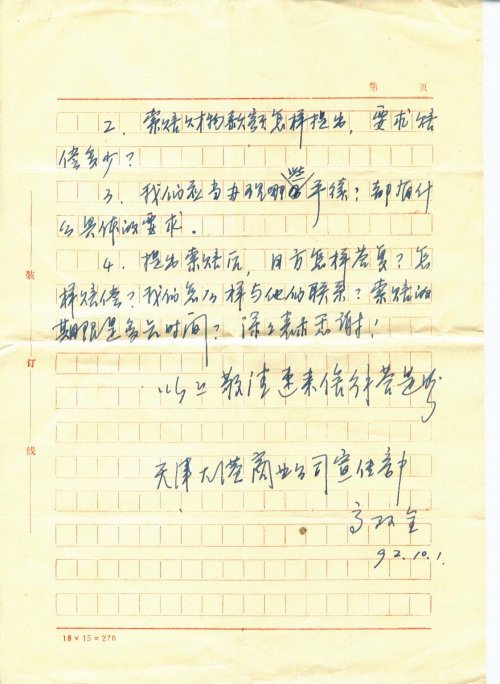 第 页
2. 索赔财物款额怎样提出, 要求赔
偿多少?
3. 我们应当办理哪些手续? 都有什
么具体的要求.
4. 提出索赔后, 日方怎样答复? 怎
样赔偿? 我们怎么样与他们联系? 索赔的
期限是多长时间? 深深表示感谢!
以上敬请速来信给予答复
天津大港商业公司宣传部
高双全
92.10.1.
装
订
线
18×15=270